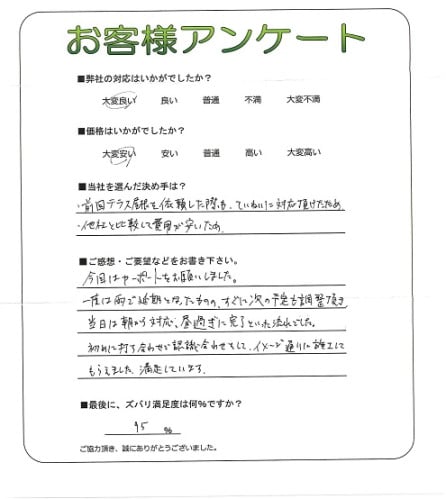 お客様アンケート
■弊社の対応はいかがでしたか？
大変良い 良い 普通 不満 大変不満
■価格はいかがでしたか？
大変安い 安い 普通 高い 大変高い
■当社を選んだ決め手は？
・前回テラス屋根を依頼した際も、ていねいに対応頂けたため
・他社と比較して費用が安いため
■ご感想・ご要望などをお書き下さい。
今回はカーポートをお願いしました。
一度は雨で延期となったものの、すぐに次の予定も調整頂き
当日は朝から対応、昼過ぎに完了といった流れでした。
初めに打ち合わせで認識合わせをして、イメージ通りに施工して
もらえました。満足しています。
■最後に、ズバリ満足度は何％ですか？
95 %
ご協力頂き、誠にありがとうございました。